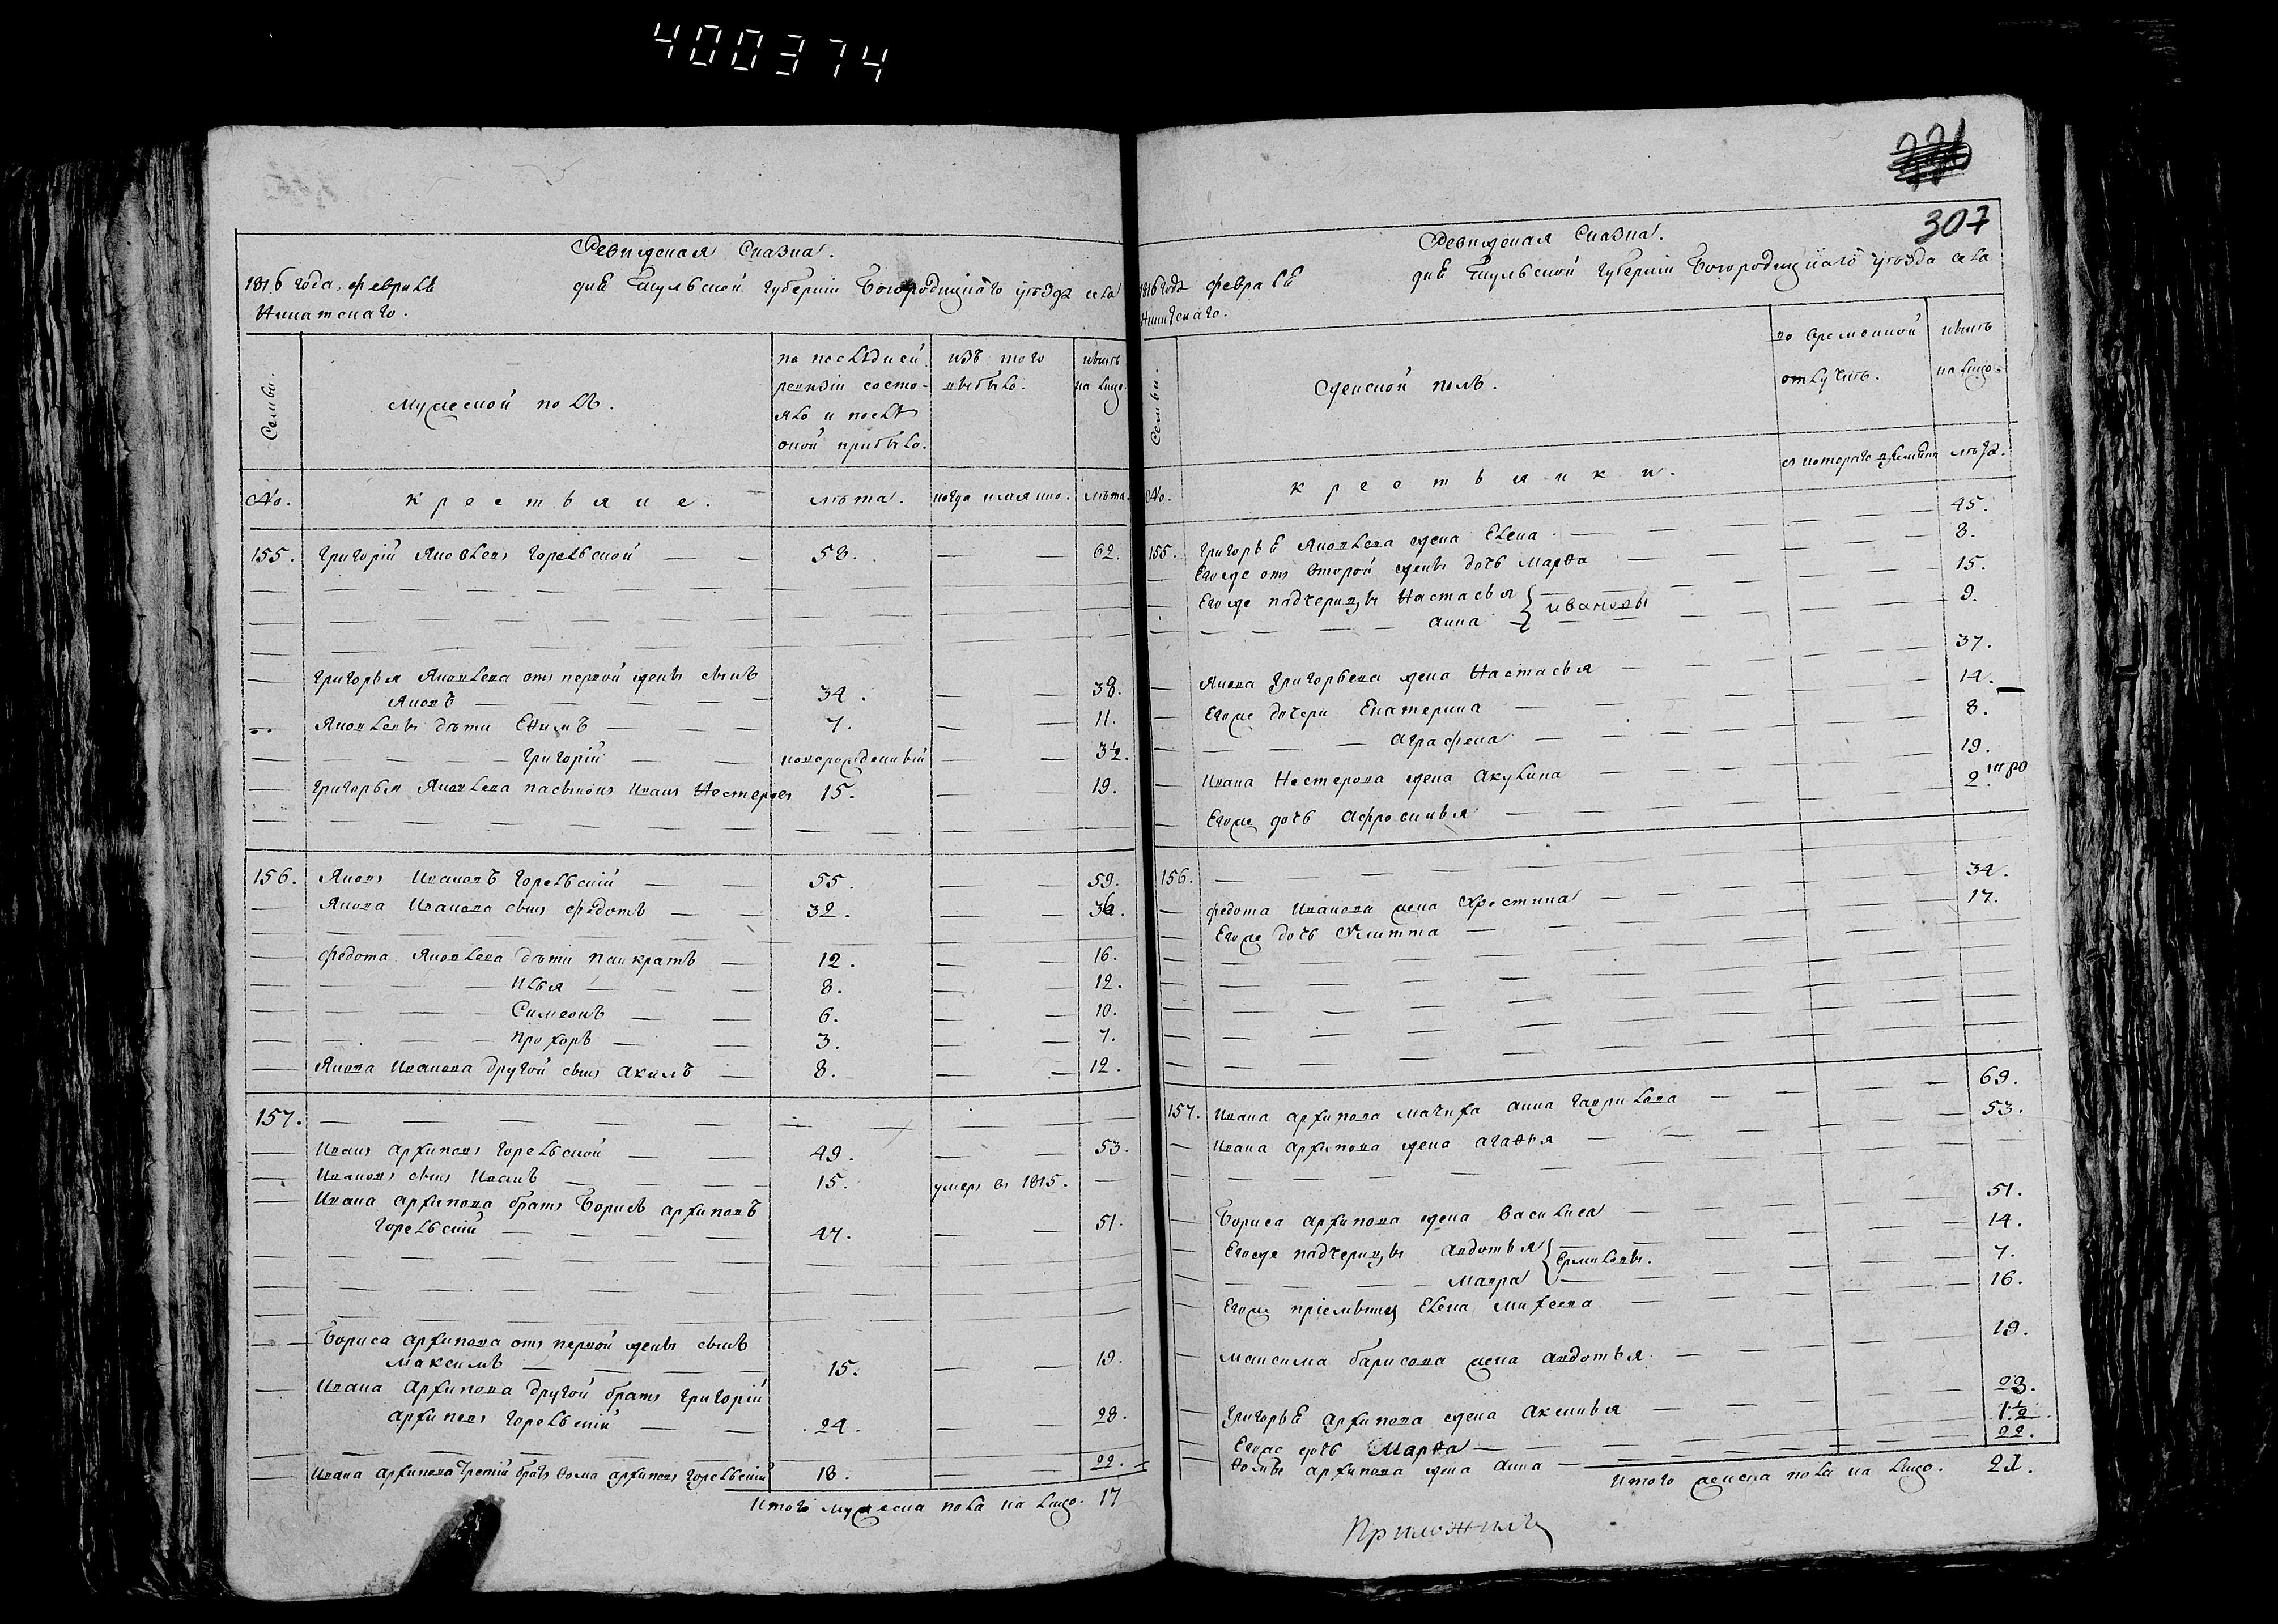 400374
Ревижская Сказка.
1816 года, февраля дня Тульской губернии Богородицкаго уѣзда села
Никитскаго.
Семьи.
Мужеской полъ.
по послѣдней
ревизіи состо-
яло и послѣ
оной прибыло.
изъ того
выбыло.
нынѣ
на лицо.
№.
крестьяне.
лѣта.
когда имянно.
лѣта.
155. Григорій Яковлевъ Горельской 58. 62.
Григорья Яковлева отъ первой жены сынъ
Яковъ 34. 38.
Яковлевы дѣти Ѳимъ 7. 11.
Григорій новорожденный 3½.
Григорья Яковлева пасынокъ Иванъ Нестеровъ 15. 19.
156. Яковъ Ивановъ Горельскій 55. 59.
Якова Иванова сынъ Федотъ 32. 36.
Федота Яковлева дѣти Панкратъ 12. 16.
Илья 8. 12.
Симеонъ 6. 10.
Прохоръ 3. 7.
Якова Иванова другой сынъ Акимъ 8. 12.
157.
Иванъ Архиповъ Горельской 49. 53.
Ивановъ сынъ Иванъ 15. умеръ въ 1815.
Ивана Архипова братъ Борисъ Архиповъ
Горельскій 47. 51.
Бориса Архипова отъ первой жены сынъ
Максимъ 15. 19.
Ивана Архипова другой братъ Григорій
Архиповъ Горельскій 24. 28.
Ивана Архипова третій братъ Ѳома Архиповъ Горельскій 18. 22.
Итого мужеска пола на лицо. 17
307
Ревижская Сказка.
1816 года февраля дня Тульской губерніи Богородицкаго уѣзда села
Никитскаго.
Семьи.
Женской полъ.
во временной
отлучкѣ.
нынѣ
на лицо.
№.
крестьянки.
съ котораго времяни
лѣта.
155. Григорья Яковлева жена Елена 45.
Егоже отъ второй жены дочь Марѳа 8.
Егоже падчерицы Настасья 15.
Анна Ивановы 9.
Якова Григорьева жена Настасья 37.
Егоже дочери Екатерина 14.
Аграфена 8.
Ивана Нестерова жена Акулина 19.
Егоже дочь Афросинья 2.
156.
Федота Иванова жена Христина 34.
Егоже дочь Улитта 17.
157. Ивана Архипова мачиха Анна Гаврилова 69.
Ивана Архипова жена Агаѳья 53.
Бориса Архипова жена Василиса 51.
Егоже падчерицы Авдотья 14.
Мавра Ермиловы. 7.
Егоже пріемышъ Елена Михеева 16.
Максима Барисова жена Авдотья 19.
Григорья Архипова жена Аксинья 23.
Егоже дочь Марѳа 1½.
Ѳомы Архипова жена Анна 22.
Итого женска пола на лицо. 21.
Приложилъ